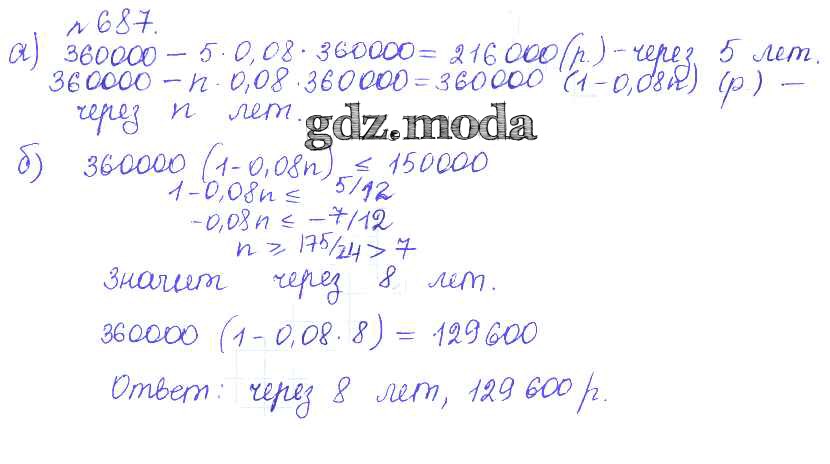 № 687.
а) 360000 − 5 · 0,08 · 360000 = 216000 (р.) − через 5 лет.
360000 − n · 0,08 · 360000 = 360000 (1−0,08n) (р) −
через n лет.
gdz.moda
б) 360000 (1−0,08n) ≤ 150000
1−0,08n ≤ 5/12
−0,08n ≤ −7/12
n ≥ 175/24 > 7
Значит через 8 лет.
360000 (1−0,08·8) = 129600
Ответ: через 8 лет, 129 600 р.